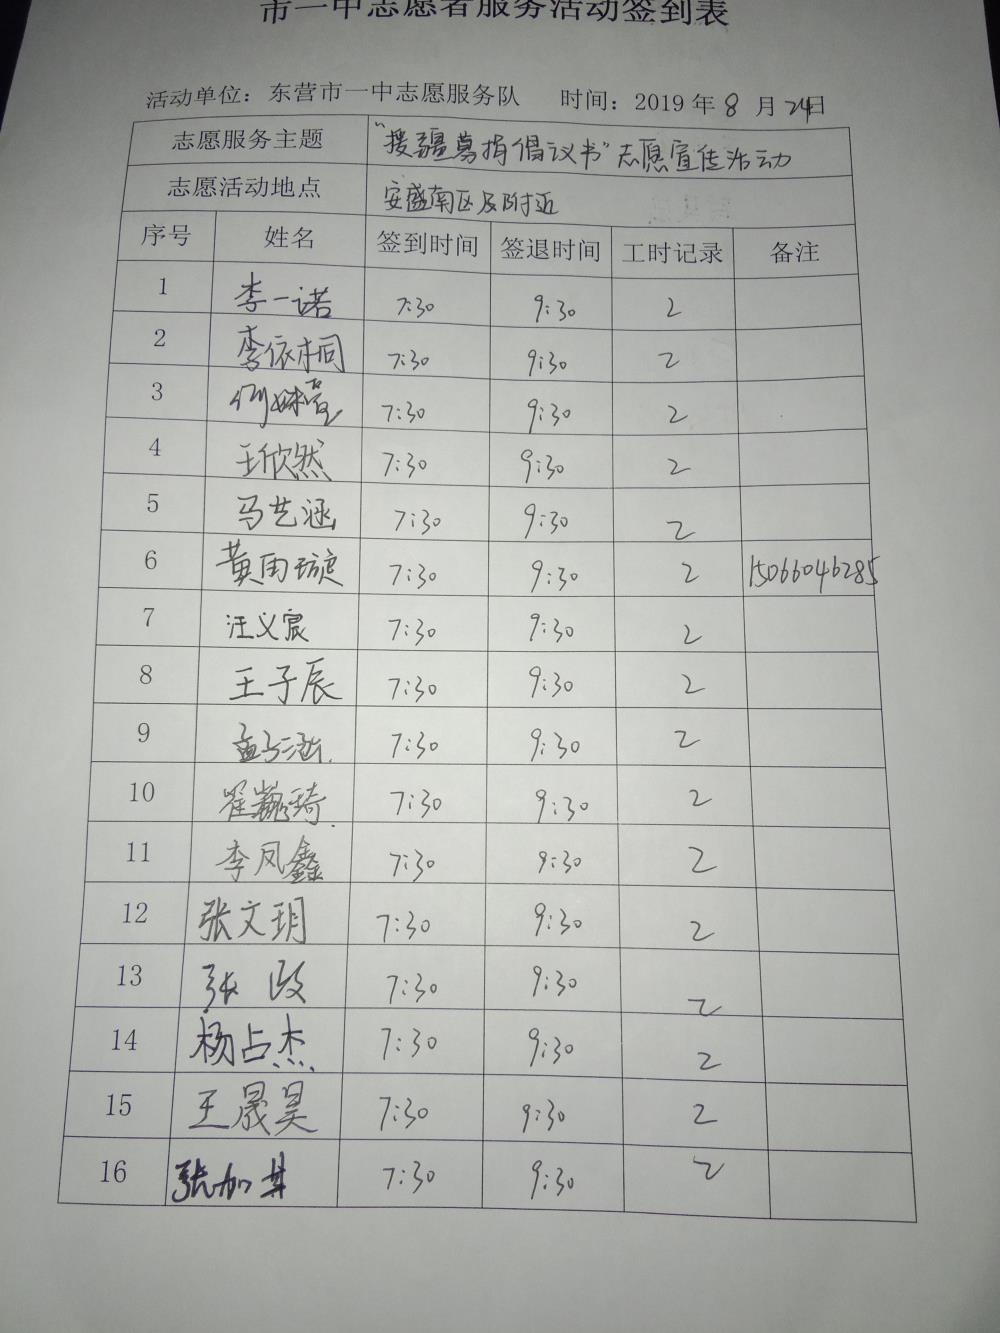 市一中志愿者服务活动签到表
活动单位：东营市一中志愿服务队 时间：2019年8月24日
志愿服务主题 “援疆募捐倡议书”志愿宣传活动
志愿活动地点 安盛南区及附近
序号 姓名 签到时间 签退时间 工时记录 备注
1 李一诺 7:30 9:30 2
2 李依桐 7:30 9:30 2
3 7:30 9:30 2
4 王欣然 7:30 9:30 2
5 马艺涵 7:30 9:30 2
6 黄雨璇 7:30 9:30 2 15066046285
7 汪义宸 7:30 9:30 2
8 王子辰 7:30 9:30 2
9 孟 7:30 9:30 2
10 翟巍琦 7:30 9:30 2
11 李凤鑫 7:30 9:30 2
12 张文玥 7:30 9:30 2
13 张政 7:30 9:30 2
14 杨占杰 7:30 9:30 2
15 王晟昊 7:30 9:30 2
16 张加 7:30 9:30 2